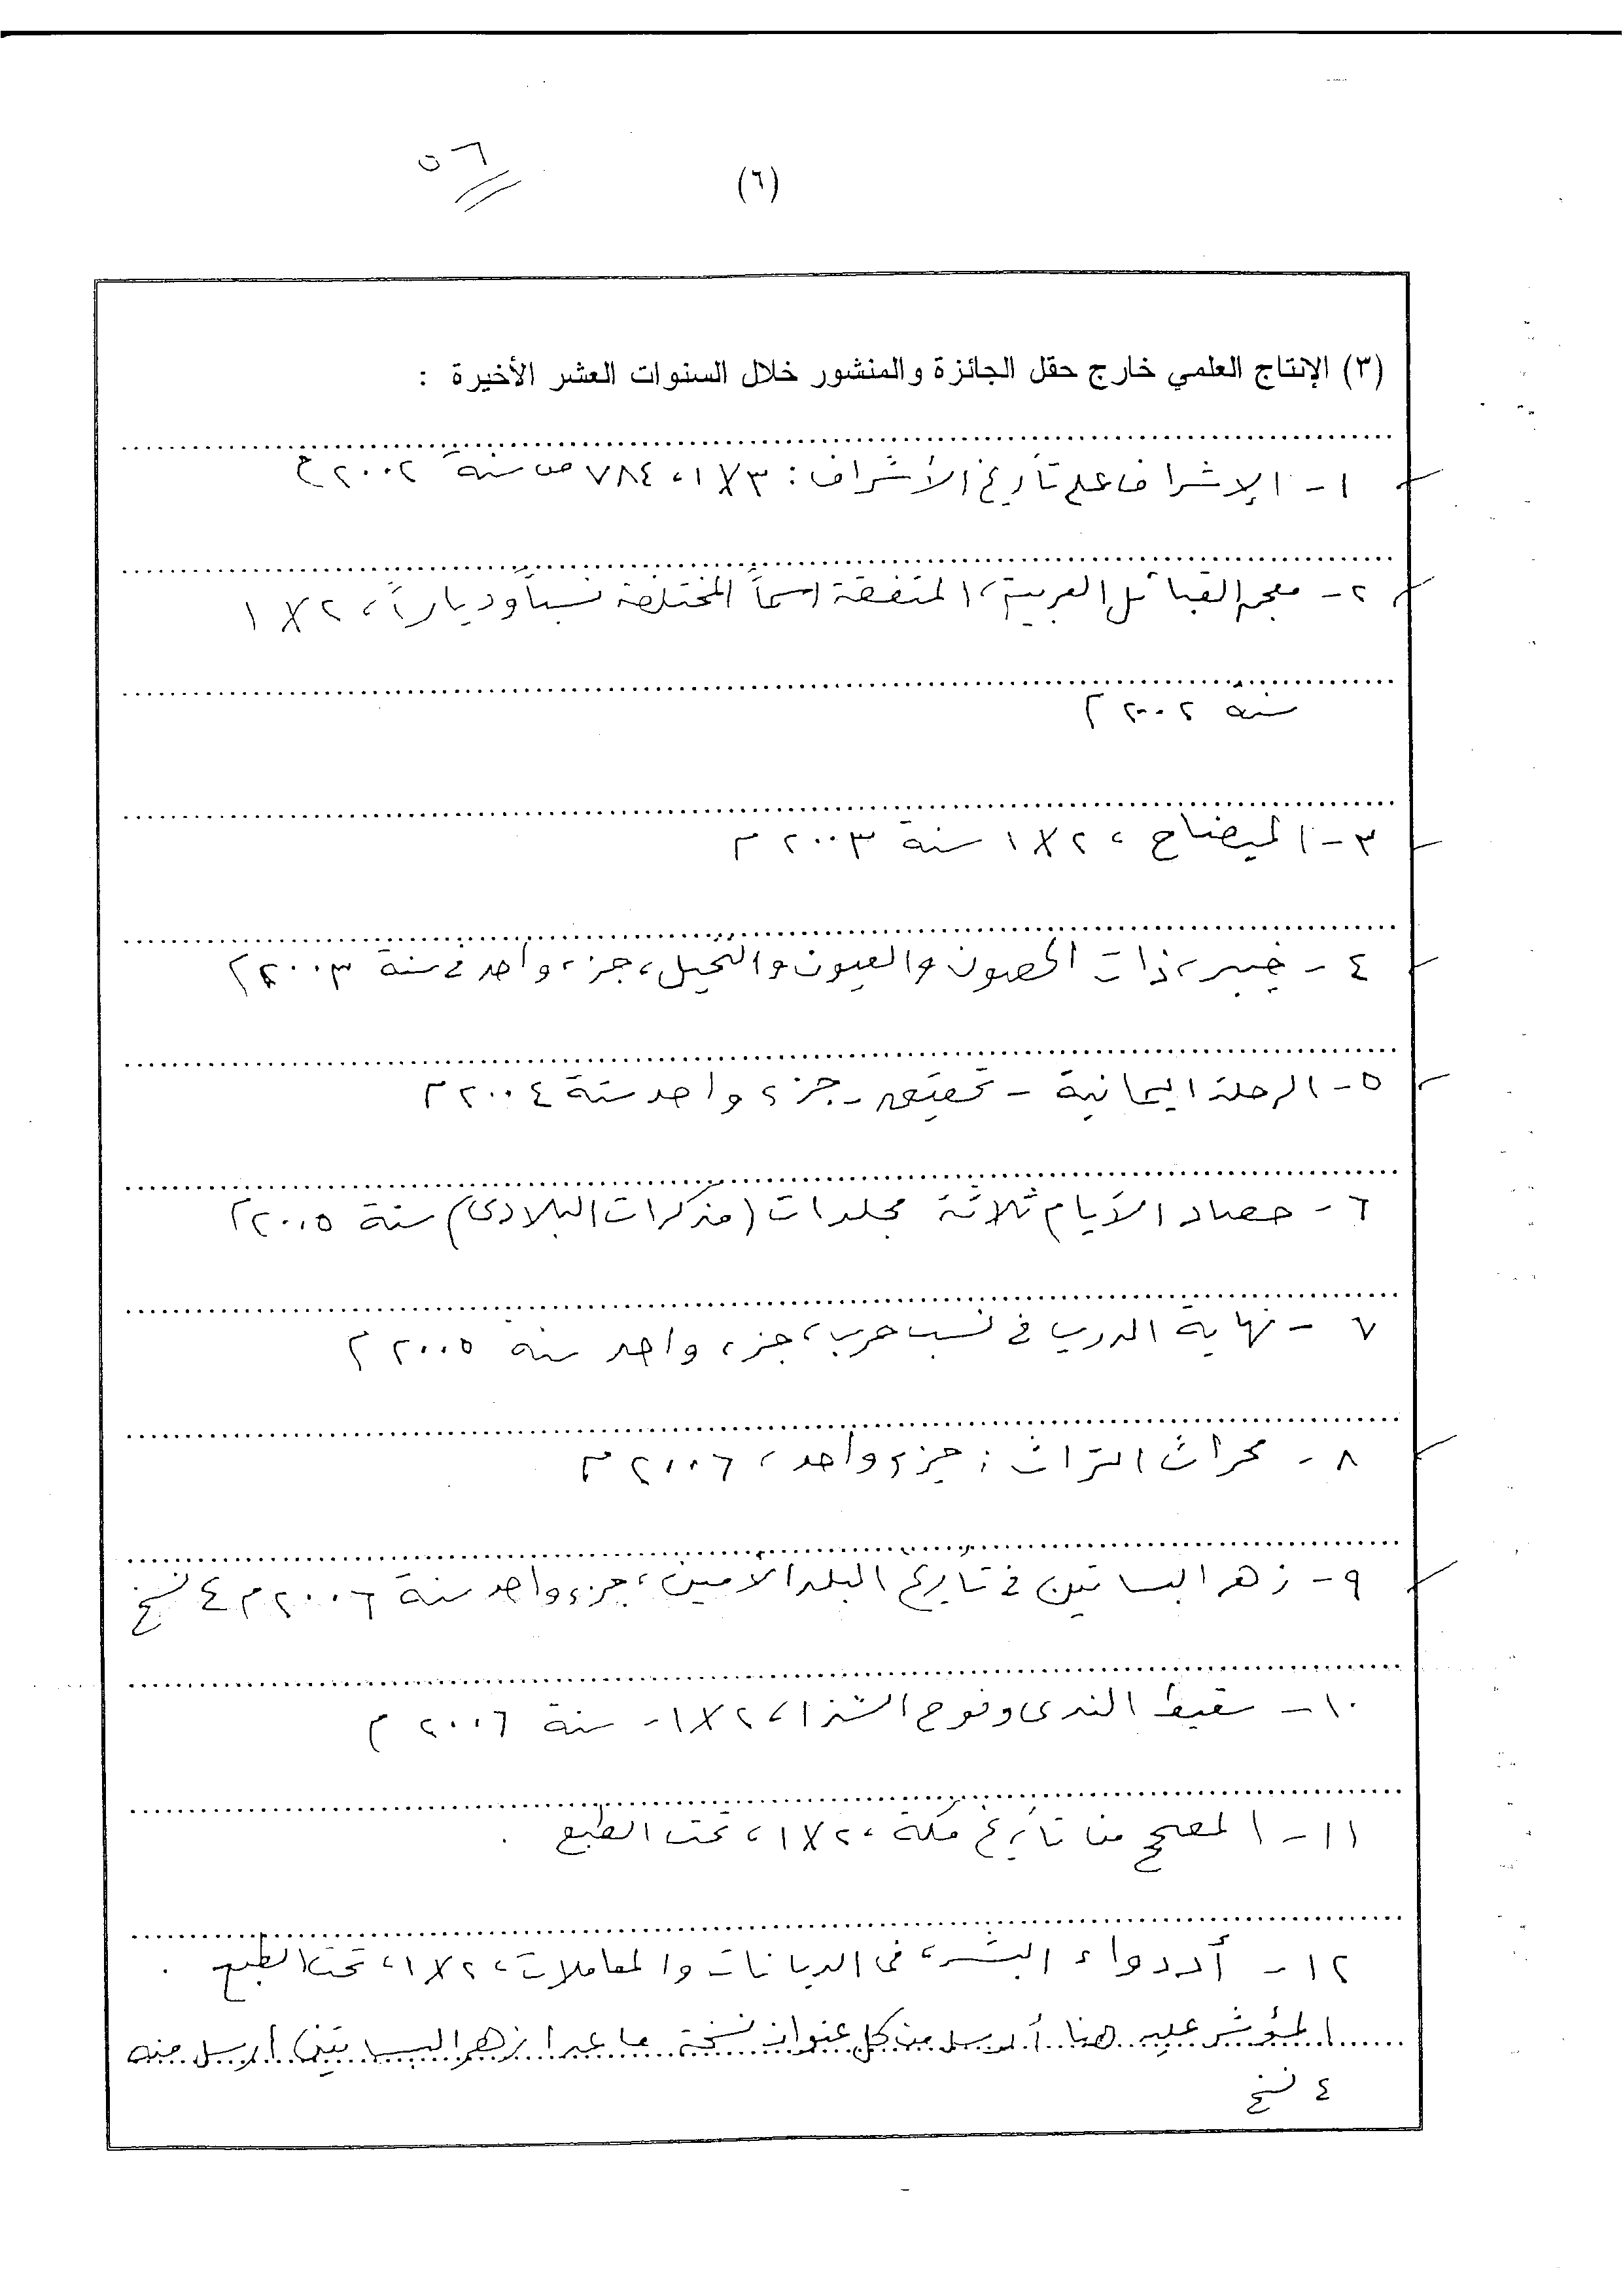 ٥٦
(٦)
(٣) الإنتاج العلمي خارج حقل الجائزة والمنشور خلال السنوات العشر الأخيرة :
١ - الإشراف على تأريخ الأشراف : ١/٣، ٧٨٤ ص سنة ٢٠٠٢ م
٢ - معجم القبائل العربية، المتفقة اسماً المختلفة نسباً ودياراً، ١/٢
سنة ٢٠٠٢ م
٣ - الميضاح، ١/٢ سنة ٢٠٠٣ م
٤ - خيبر، ذات الحصون والعيون والنخيل، جزء واحد في سنة ٢٠٠٣ م
٥ - الرحلة اليمانية - تحقيق - جزء واحد سنة ٢٠٠٤ م
٦ - حصاد الأيام ثلاثة مجلدات (مذكرات البلادي) سنة ٢٠٠٥ م
٧ - نهاية الدرب في نسب حرب، جزء واحد سنة ٢٠٠٥ م
٨ - محراث التراث : جزء واحد، ٢٠٠٦ م
٩ - زهر البساتين في تاريخ البلد الأمين، جزء واحد سنة ٢٠٠٦ م ٤ نسخ
١٠ - سقيط الندى وفوح الشذا، ١/٢ - سنة ٢٠٠٦ م
١١ - المصحح من تأريخ مكة، ١/٢، تحت الطبع .
١٢ - أدواء البشر، في الديانات والمعاملات، ١/٢، تحت الطبع .
المؤشر عليه هنا أرسل من كل عنوان نسخة ما عدا زهر البساتين أرسل منه
٤ نسخ